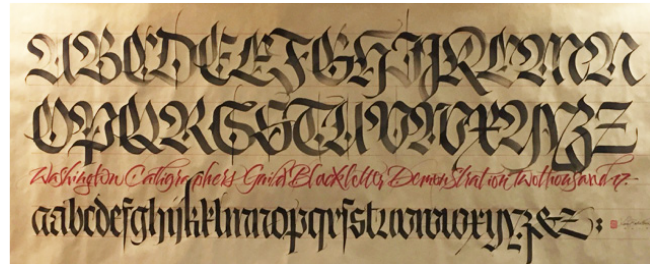 ABCDEEFGHIJKLMN
OPQRGSTUVWXYYZZ
Washington Calligraphers Guild Blackletter Demonstration Twothousand 17
aabcdefghijkklmnopqrsstuvwwxyyz&z: